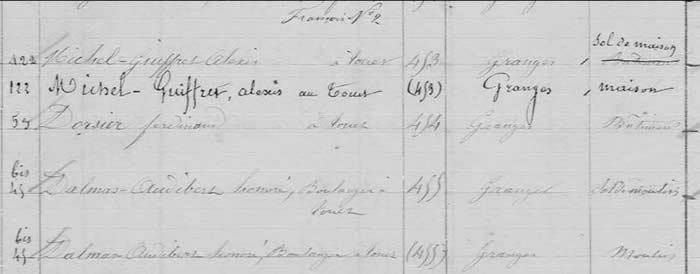 François N° 2
sol de maison
122 Michel-Guiffret Alexis à touet 453 Granges,
122 Michel-Guiffret, alexis au Touet (453) Granges, maison
Dorsier ferdinand à touet 454 Granges Bâtiment
bis
45 Dalmas-Audibert honoré, Boulanger à 455 Granges Sol de moulin
touet
bis
45 Dalmas Audibert honoré, Boulanger à touet (455) Granges Moulin